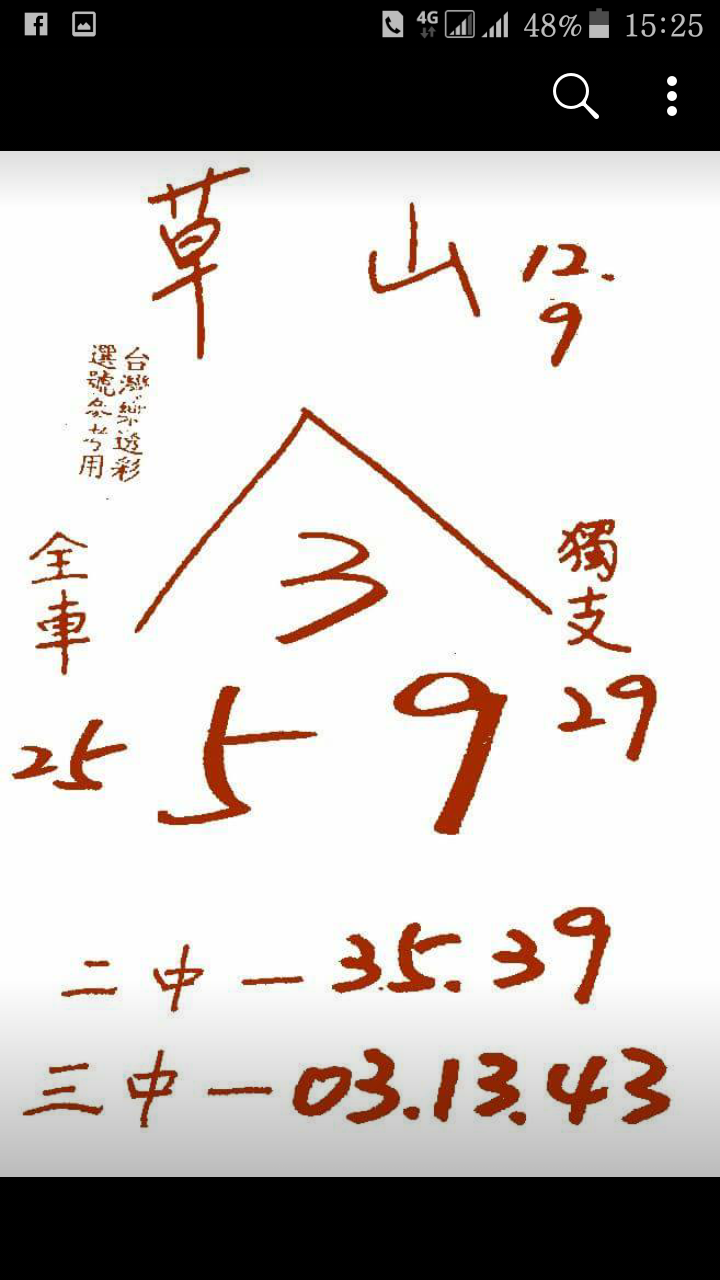 4G 48% 15:25
草山 12.
9
台灣樂透彩
選號參考用
3
全車
獨支
25
5 9
29
二中一35.39
三中一03.13.43